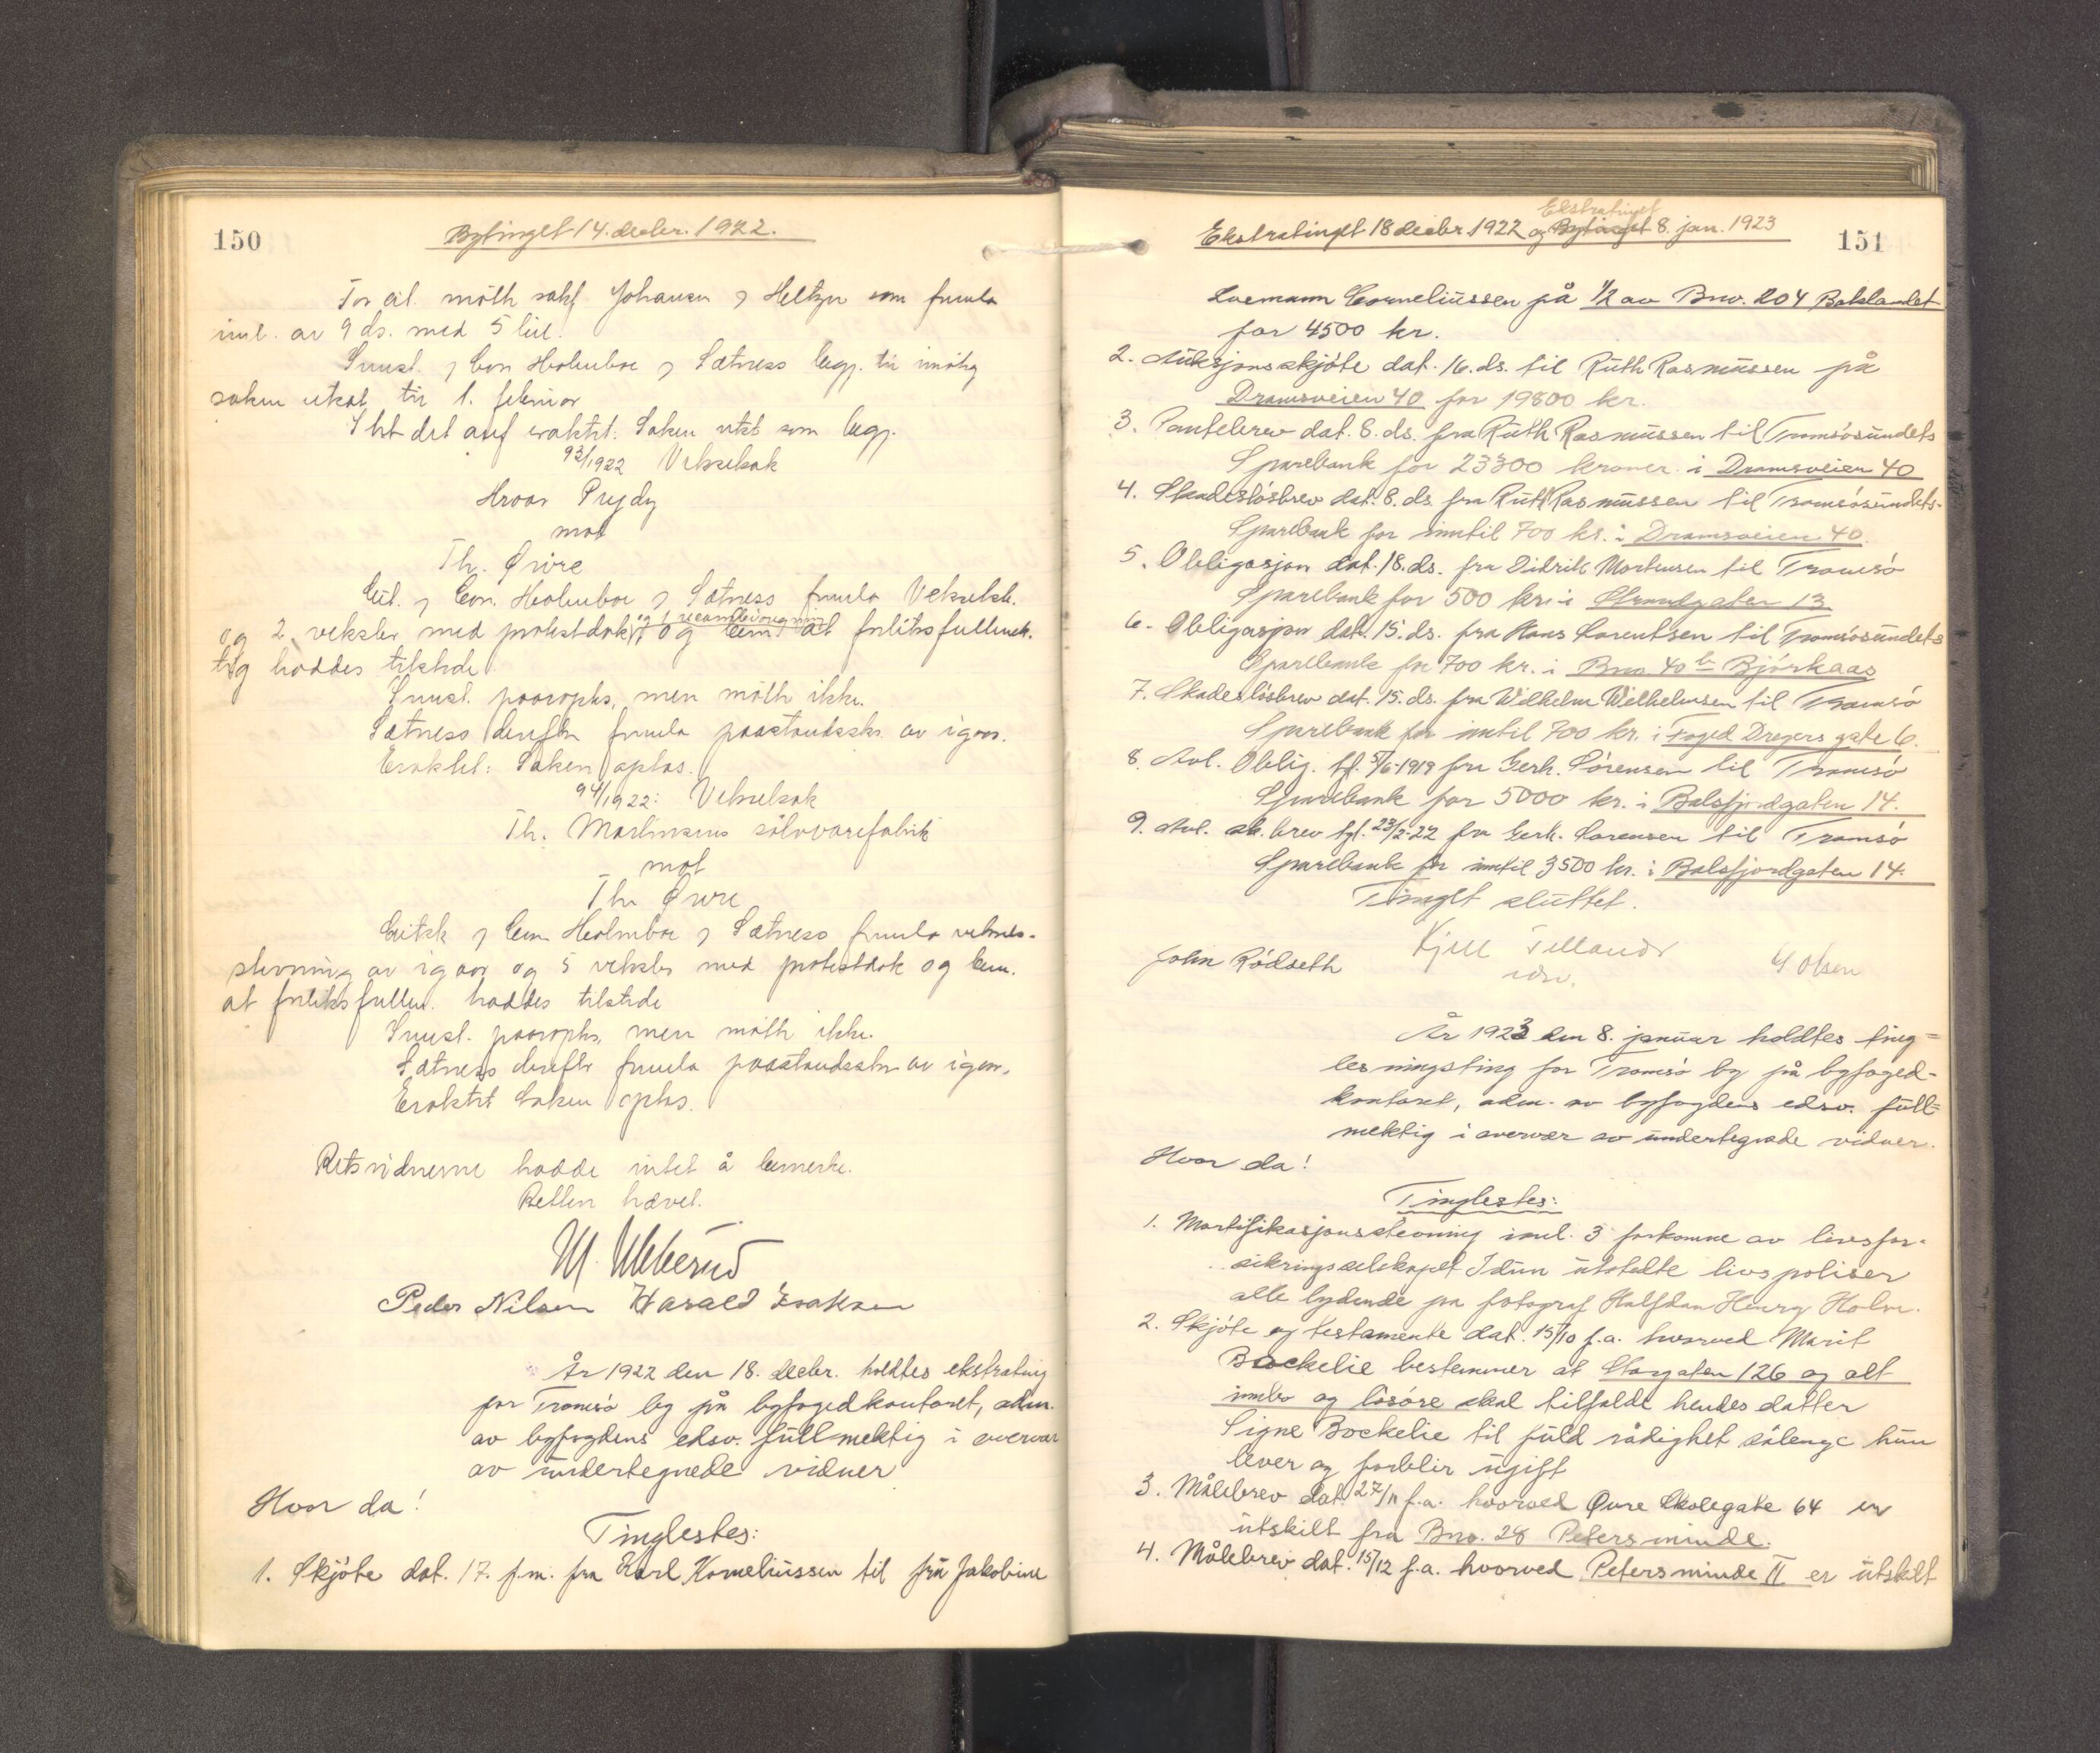 150
Bytinget 14. decbr. 1922.
For cit. mötte sakf. Johansen 9 Heltzen som fremla
innl. av 9 ds. med 5 bil.
Innst. 9 Con Holmboe 9 Sætness begj. tir imötg
saken utsat tir 1. februar
Iht det anf eraktet: Saken utst som begj.
93/1922 Vekselsak
Hroar Prydz
mot
Th. Øwre
Cit. 9 Con. Holmboe 9 Sætness fremla Vekselst.
og 2 veksler med protestdok, og bem. at forliksfullmek-
tig haddes tilstede.
Innst. paaroptes, men mötte ikke.
Sætness derefter fremla paastandsskr. av igaar.
Eraktet: Saken optas.
94/1922: Vekselsak
Th. Martinsens sölvvarefabrik
mot
Th Øwre
Citsk 9 Con Holmboe 9 Sætness fremla veksel-
stevning av igaar og 5 veksler med protestdok og bem.
at forliksfullm. haddes tilstede
Innst. paaroptes, men mötte ikke.
Sætness derefter fremla paastandsskr av igaar.
Eraktet Saken optas.
Retsvidnerne hadde intet å bemerke.
Retten hævet.
Peder Nilsen Harald Isaksen
År 1922 den 18. decbr. holdtes ekstrating
for Tromsö by på byfogedkontoret, adm.
av byfogdens edsv. fullmektig i overvær
av undertegnede vidner
Hvor da!
Tinglestes:
1. Skjöte dat. 17. f.m. fra Karl Korneliussen til fru Jakobine
Ekstratinget 18 decbr 1922 og Bytinget Ekstratinget 8. jan. 1923
151
Corneliussen på 1/2 av Bno. 204 Bakelandet
for 4500 kr.
2. Auksjonsskjöte dat. 16. ds. til Ruth Rasmussen på
Dramsveien 40 for 19800 kr.
3. Pantebrev dat. 8. ds. fra Ruth Rasmussen til Tromsösundets
Sparebank for 23300 kroner i Dramsveien 40
4. Skadeslösbrev dat. 8. ds. fra Ruth Rasmussen til Tromsösundets-
Sparebank for inntil 700 kr. i Dramsveien 40.
5. Obligasjon dat. 18. ds. fra Didrik Mortensen til Tromsö
Sparebank for 500 kr. i Strandgaten 13
6. Obligasjon dat. 15. ds. fra Hans Lorentsen til Tromsösundets
Sparebank for 700 kr. i Bno. 40 b Björkaas
7. Skadeslösbrev dat. 15. ds. fra Wilhelm Wilhelmsen til Tromsö
Sparebank for inntil 700 kr. i Foged Dreyers gate 6.
8. Avl. Oblig. tgl. 5/6-1919 fra Gerh. Sörensen til Tromsö
Sparebank for 5000 kr. i Balsfjordgaten 14.
9. Avl. sk. brev tgl. 23/2-22 fra Gerh. Sorensen til Tromsö
Sparebank for inntil 3500 kr. i Balsfjordgaten 14.
Tinget sluttet.
Kjell Tellander
edsv.
John Rödseth
Olsen
År 1923 den 8. januar holdtes ting-
lesningsting for Tromsö by på byfoged-
kontoret, adm. av byfogdens edsv. full-
mektig i overvær av undertegnede vidner.
Hvor da!
Tinglestes:
1. Mortifikasjonsstevning innl. 3 forkomne av livsfor-
sikringsselskapet Idun utstedte livspoliser
alle lydende på fotograf Halfdan Henry Holm.
2. Skjöte og testamente dat. 15/10 f.a. hvorved Marit
Bockelie bestemmer at Storgaten 126 og alt
innbo og lösöre skal tilfalde hendes datter
Signe Bockelie til fuld rådighet sålenge hun
lever og forblir ugift
3. Målebrev dat. 27/11 f.a. hvorved Øvre Skolegate 64 er
utskilt fra Bno. 28 Petersminde.
4. Målebrev dat. 15/12 f.a. hvorved Petersminde II er utskilt